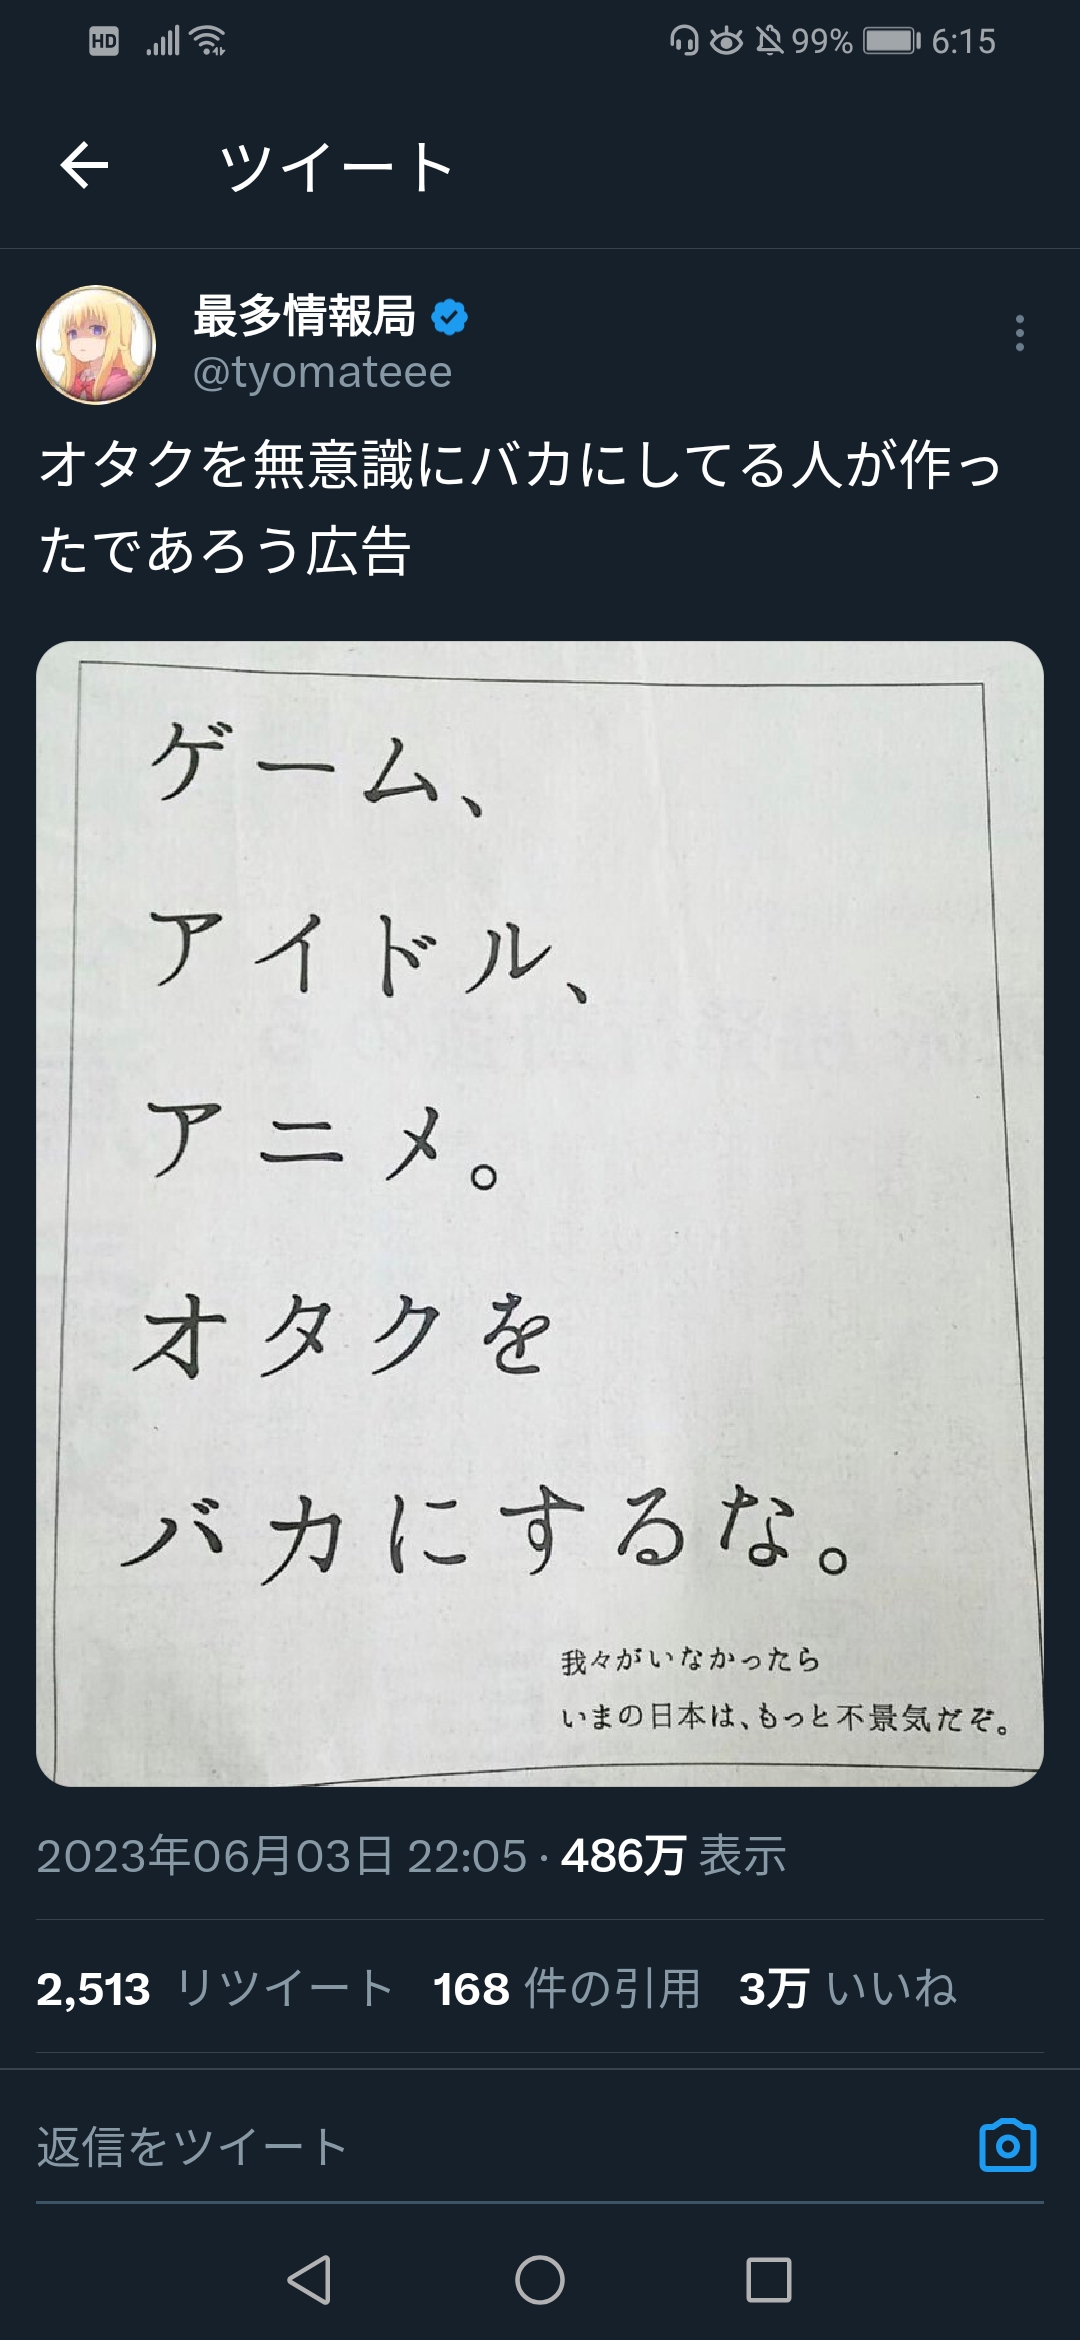 HD 99% 6:15
ツイート
最多情報局
@tyomateee
オタクを無意識にバカにしてる人が作っ
たであろう広告
ゲーム、
アイドル、
アニメ。
オタクを
バカにするな。
我々がいなかったら
いまの日本は、もっと不景気だぞ。
2023年06月03日 22:05 · 486万 表示
2,513 リツイート 168 件の引用 3万 いいね
返信をツイート